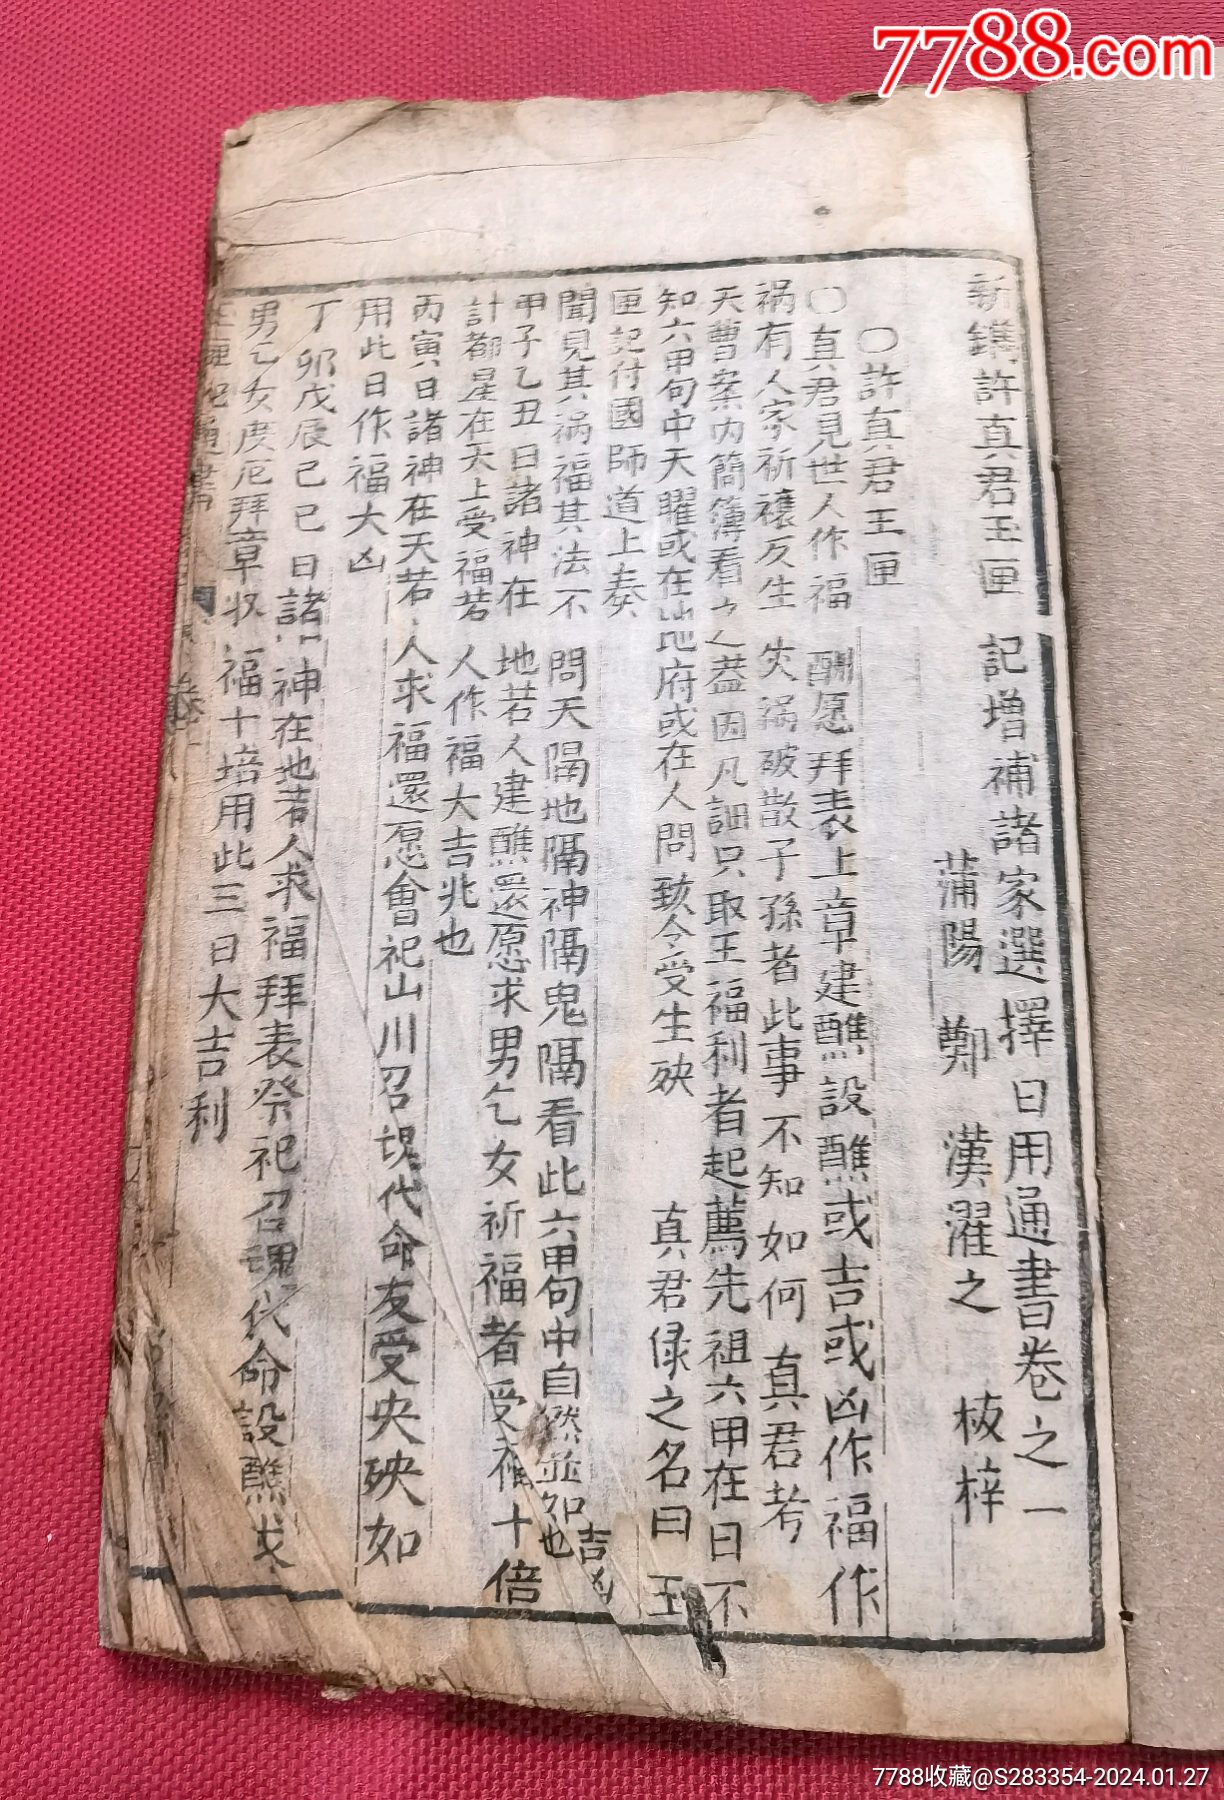 7788.com
新鐫許真君玉匣記增補諸家選擇日用通書卷之一
蒲陽 鄭 漢濯之 梓
〇許真君玉匣
〇真君見世人作福酬愿拜表上章建醮設醮或吉或凶作福作
禍有人家祈禳反生灾禍破散子孫者此事不知如何真君考
天曹案內簡簿看之蓋因凡詔只取王福利者起薦先祖六甲在日不
知六甲旬中天曜或在地府或在人間致令受生殃 真君錄之名曰玉
匣記付國師道上奏
聞見其禍福其法不問天隔地隔神隔鬼隔看此六甲旬中自然並知吉凶也
甲子乙丑日諸神在地若人建醮還愿求男乞女祈福者受福十倍
計都星在天上受福若人作福大吉兆也
丙寅日諸神在天若人求福還愿會祀山川召魂代命友受央殃如
用此日作福大凶
丁卯戊辰己巳日諸神在地若人求福拜表祭祀召魂代命設醮求
男乞女度厄拜章収福十培用此三日大吉利
玉匣記通書 卷一
7788收藏@S283354-2024.01.27